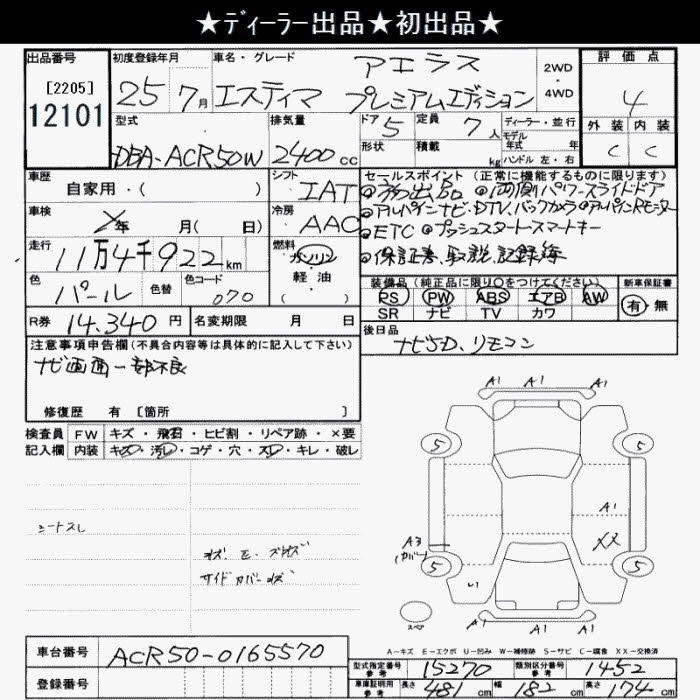 ★ディーラー出品★初出品★
出品番号 初度登録年月 車名・グレード 評価点
[2205] 25 7月 エスティマ アエラス プレミアムエディション 2WD・4WD 4
12101
型式 排気量 ドア 5 定員 7人 ディーラー・並行 外装 内装
DBA-ACR50W 2400cc 形状 積載 kg モデル年式 年 C C
ハンドル 左・右
車歴 シフト セールスポイント (正常に機能するものに限ります)
自家用・( ) IAT ◎初出品 ◎両側パワースライドドア
車検 年 月( 日) 冷房 AAC ◎アルパインナビ・DTV.バックカメラ◎アルパインRモニター
走行 燃料 ◎ETC ◎プッシュスタート・スマートキー
11万4千922km ガソリン ◎保証書、取説、記録簿
色 色替 色コード 軽油 装備品 (純正品に限り○をつけてください) 新車保証書
パール 070 ( ) PS PW ABS エアB AW 有・無
SR ナビ TV カワ
R券 14.340円 名変期限 月 日 後日品
注意事項申告欄(不具合内容等は具体的に記入して下さい) ナビSD、リモコン
ナビ画面一部不良
修復歴 有 [箇所 ]
検査員 FW キズ・飛石・ヒビ割・リペア跡・×要
記入欄 内装 キズ・汚レ・コゲ・穴・スレ・キレ・破レ
A1 A1 A1
5 5
シートスレ
A1
A3 XX
(カバー)
サイドカバーキズ
5 5
A1 A1 A1
A-キズ E-エクボ U-凹み W-補修跡 S-サビ C-腐食 XX-交換済
車台番号 ACR50-0165570
型式指定番号 参考 15270 類別区分番号 参考 1452
登録番号 車庫証明用 参考 長さ 481cm 幅 182cm 高さ 174cm